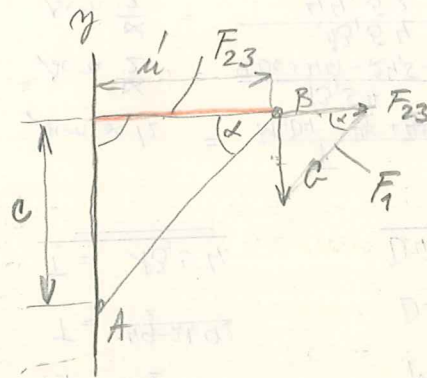 y
u'
F₂₃
B
F₂₃
α
α
G
F₁
c
A